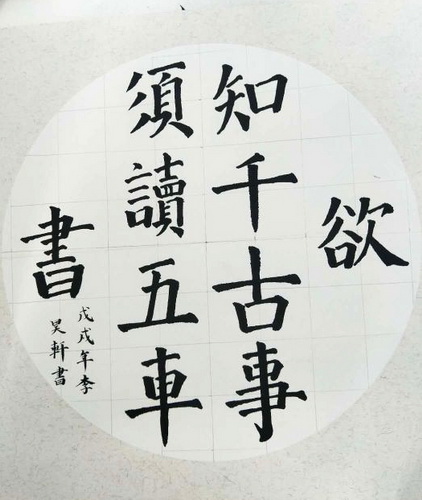 欲
知千古事
須讀五車
書
戊戌年李
昊軒書